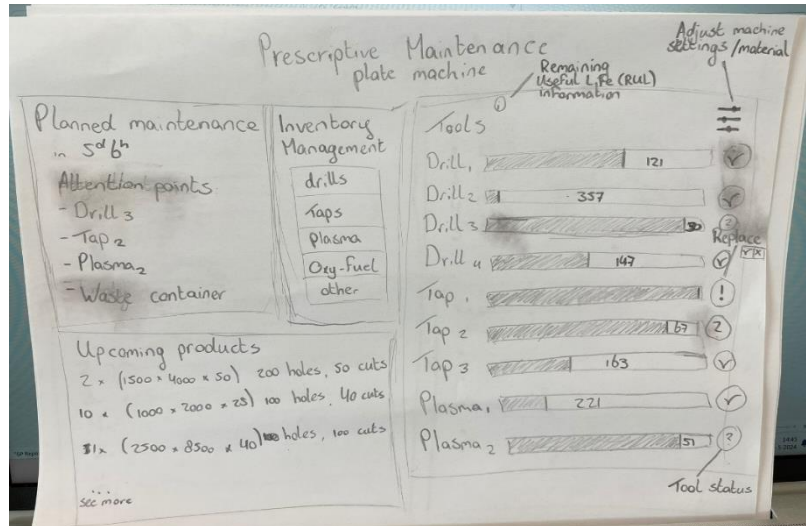 Prescriptive Maintenance
plate machine
Adjust machine
settings/material
Remaining
Useful Life (RUL)
information
i
Planned maintenance
in 5d 6h
Attention points
- Drill 3
- Tap 2
- Plasma 2
- Waste container
Inventory
Management
drills
Taps
Plasma
Oxy-fuel
other
Upcoming products
2 x (1500 x 4000 x 50) 200 holes, 50 cuts
10 x (1000 x 2000 x 25) 100 holes, 40 cuts
1x (2500 x 8500 x 40) holes, 100 cuts
...
see more
Tools
Drill 1 121
Drill 2 357
Drill 3 ?
Replace
Drill 4 147
Tap 1 !
Tap 2 67 ?
Tap 3 163
Plasma 1 221
Plasma 2 51 ?
Tool status